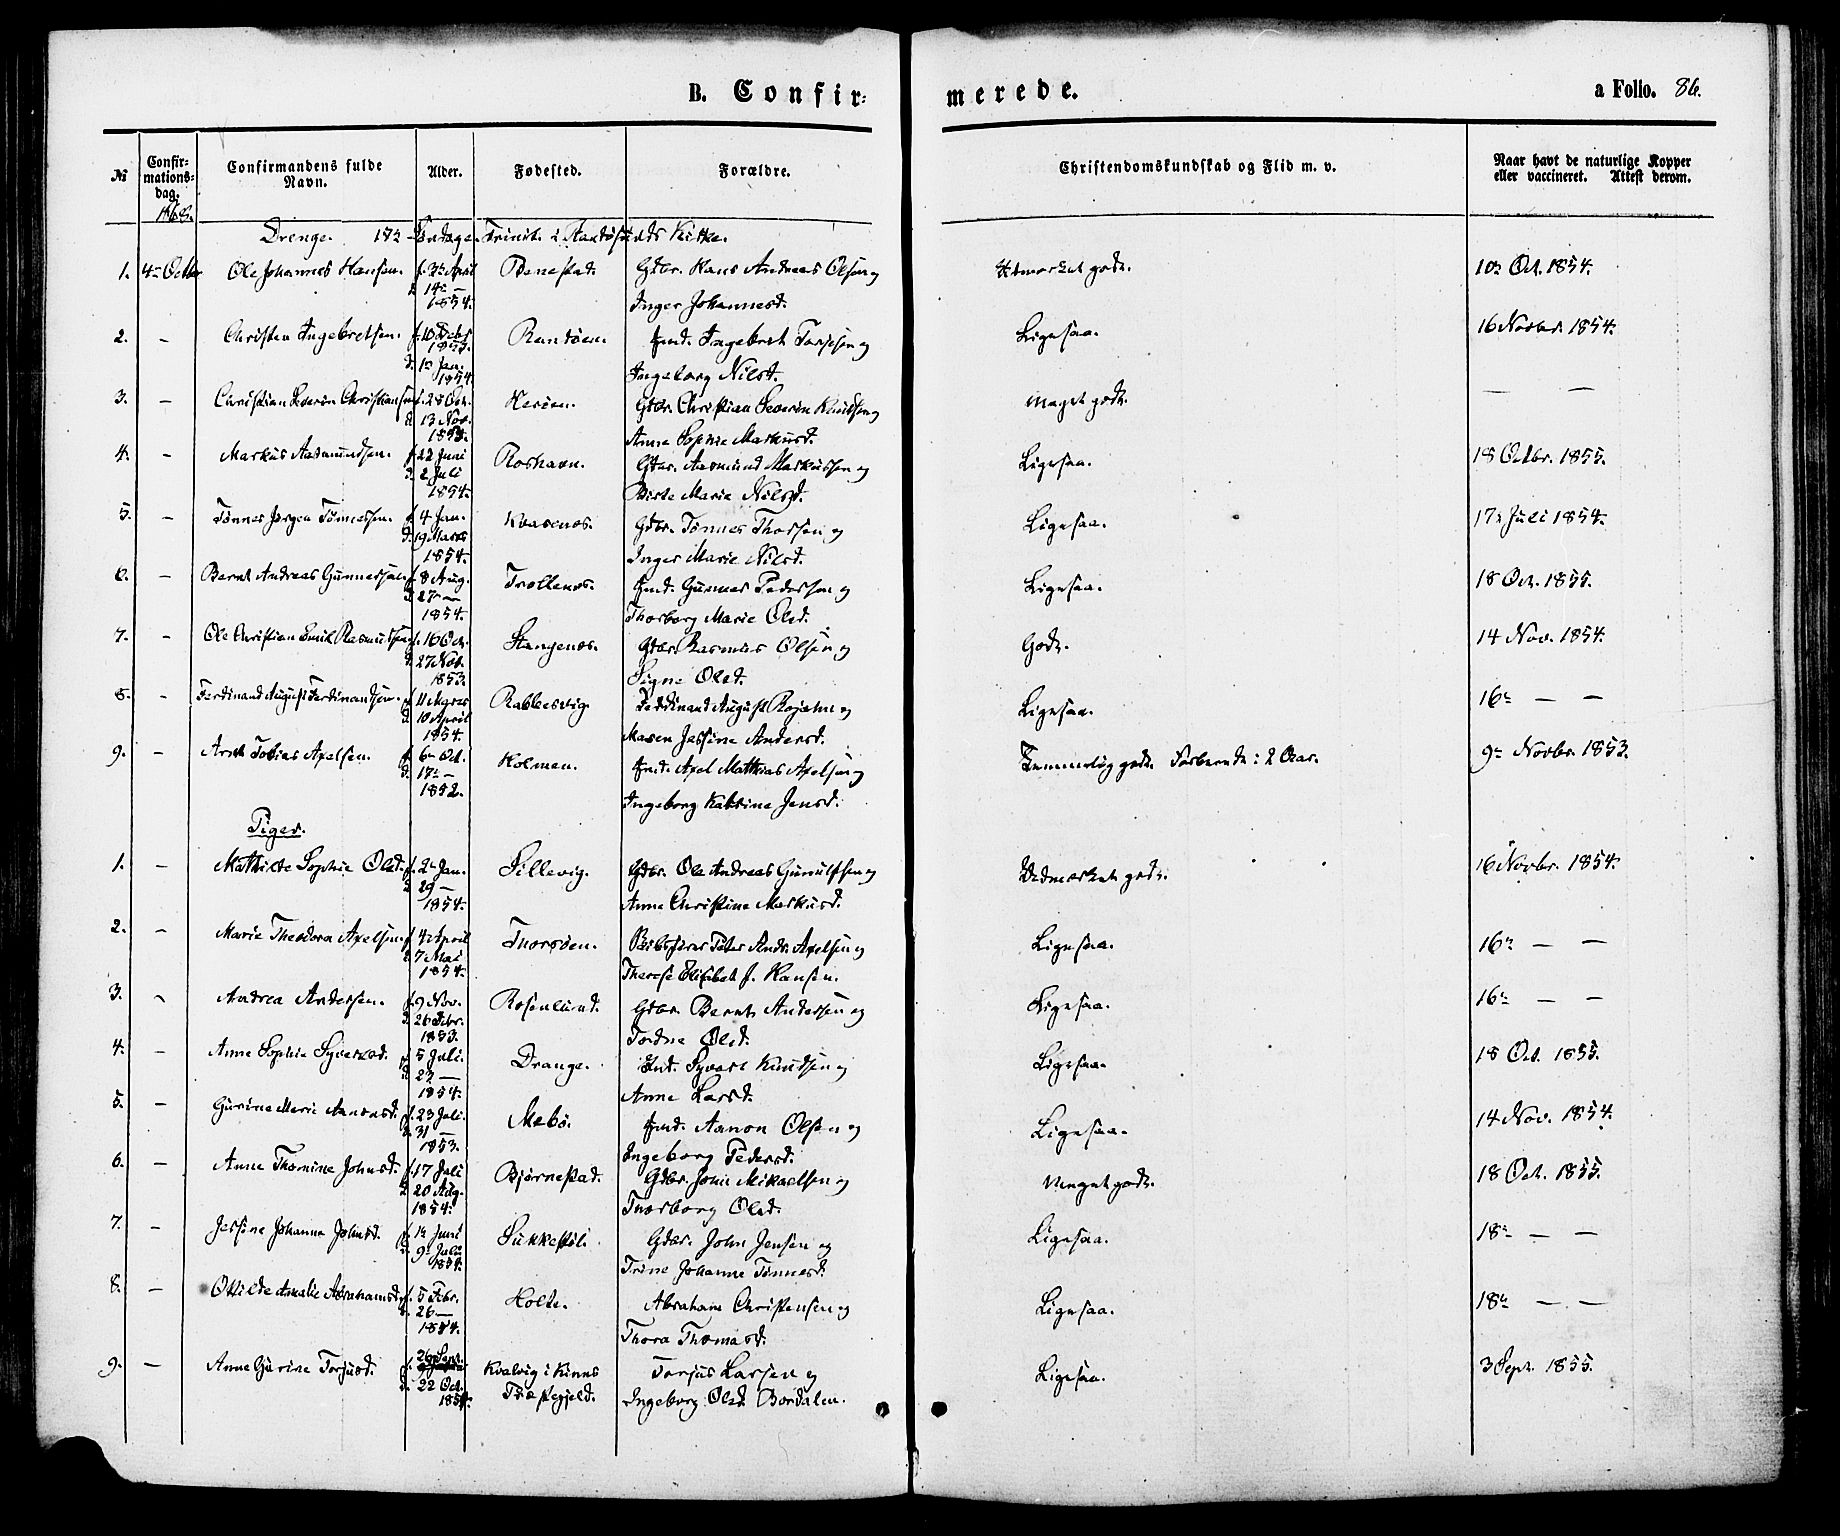 B. Confir=
merede.
a Folio. 86.
№
Confir=
mations=
dag.
1868.
Confirmandens fulde
Navn.
Alder.
Fødested.
Forældre.
Christendomskundskab og Flid m. v.
Naar havt de naturlige Kopper
eller vaccineret. Attest derom.
Drenge. 17de Søndag e. Trinit. i Randøsunds Kirke.
1. 4de Octbr Ole Johannes Hansen. f. 3de April Benestad. Gdbr. Hans Andreas Olsen og Udmærket godt. 10de Oct. 1854.
d. 14de —
1854. Inger Johannesd.
2. – Christen Ingebretsen. f. 10 Debr Randøen. Ind. Ingebret Torjesen og Ligesaa. 16 Novbr. 1854.
1853.
d. 1de Jan.
1854. Ingeborg Nilsd.
3. – Christian Severin Christiansen f. 28 Oct. Herøen. Gdbr. Christian Severin Knudsen og Meget godt. — —
d. 13 Nov.
1853. Anne Sophie Markusd.
4. – Markus Aasmundsen. f. 22 Juni Roshavn. Gdbr. Aasmund Markussen og Ligesaa. 18 Octbr. 1855.
d. 2 Juli
1854. Birte Marie Nilsd.
5. – Tønnes Jørgen Tønnessen. f. 4 Jan. Kvasenes. Gdbr. Tønnes Thorsen og Ligesaa. 17de Juli 1854.
d. 19 Marts
1854. Inger Marie Nilsd.
6. – Bernt Andreas Gunnersen f. 8 Aug. Trollenes. Ind. Gunner Pedersen og Ligesaa. 18 Oct. 1855.
d. 27 —
1854. Thorborg Marie Olsd.
7. – Ole Christian Emil Rasmussen f. 16 Oct. Stangenes. Gdbr. Rasmus Olsen og Godt. 14 Nov. 1854.
d. 27 Nov.
1853. Signe Olsd.
8. – Ferdinand August Ferdinandsen. f. 11 Marts Rabbesvig. Ferdinand August og Ligesaa. 16de — —
d. 10 April
1854. Maren Jessine Andersd.
9. – Arnt Tobias Axelsen. f. 6te Oct. Holmen. Ind. Axel Matthias Axelsen og Temmelig godt. Forberedt i 2 Aar. 9de Novbr. 1853.
d. 17de —
1852. Ingeborg Katrine Jensd.
Piger.
1. – Mathilde Sophie Olsd. f. 2de Jan. Sillevig. Gdbr. Ole Andreas Gunulfsen og Udmærket godt. 16 Novbr. 1854.
d. 29 —
1854. Anne Christine Markusd.
2. – Marie Theodora Axelsen f. 4 April Thorsøen. Peter Andr. Axelsen og Ligesaa. 16de — —
d. 7 Mai
1854. Therese Elisabet f. Hansen.
3. – Andrea Andersen. f. 9 Nov. Rosenlund. Gdbr. Bernt Andersen og Ligesaa. 16de — —
d. 26 Febr.
1853. Tordne Olsd.
4. – Anne Sophie Syversd. f. 5 Juli. Drange. Ind. Syvert Knudsen og Ligesaa. 18 Oct. 1855.
d. 23 —
1854. Anne Larsd.
5. – Gurine Marie Aanonsd. f. 23 Juli. Mebø. Ind. Aanon Olsen og Ligesaa. 14 Nov. 1854.
d. 31 —
1853. Ingeborg Pedersd.
6. – Anne Thomine Johnsd. f. 17 Juli Bjørnestad. Gdbr. John Mikaelsen og Meget godt. 18 Oct. 1855.
d. 20 Aug.
1854. Thorborg Olsd.
7. – Jessine Johanne Johnsd. f. 1de Juni Sukkestøl. Gdbr. John Jensen og Ligesaa. 18de — —
d. 9de Juli
1854. Trine Johanne Tønnesd.
8. – Otilde Amalie Abrahamsd. f. 5 Febr. Holte. Abraham Christensen og Ligesaa. 18de — —
d. 26 —
1854. Thora Thomasd.
9. – Anne Gurine Torjusd. f. 26 Sept. Kvalvig i Kinns Torjus Larsen og Ligesaa. 3 Sept. 1855.
d. 22 Oct. Præstegjeld. Ingeborg Olsd. Bordalen.
1854.